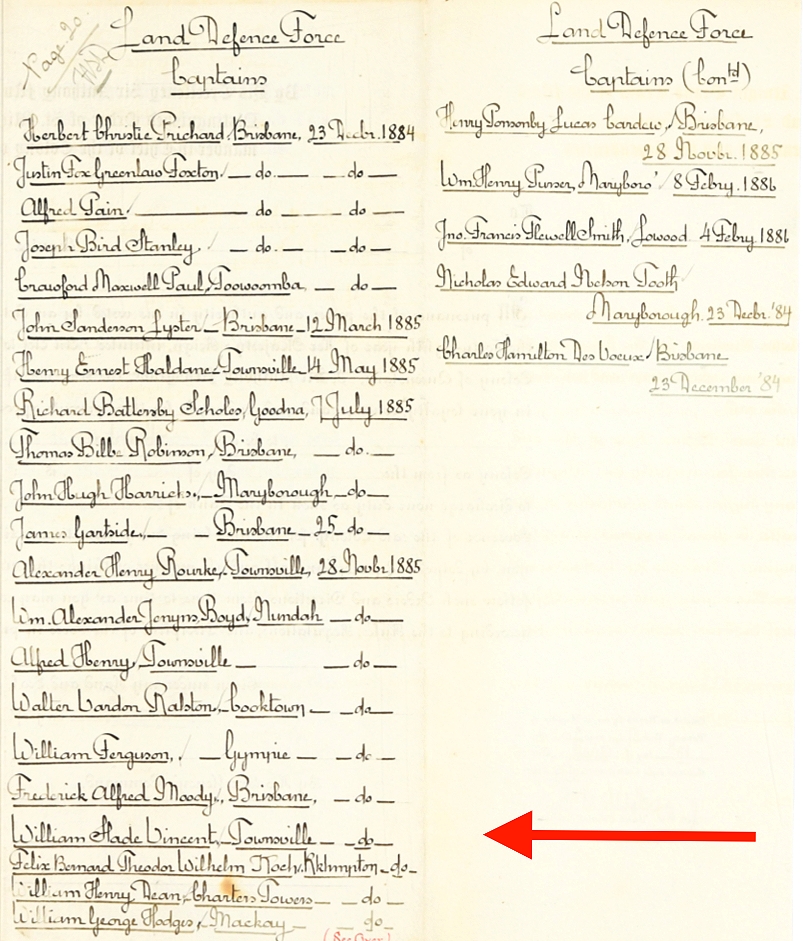 Page 20
Land Defence Force
Captains
Herbert Christie Prichard, Brisbane, 23 Decbr. 1884
Justin Fox Greenlaw Foxton — do. — — do —
Alfred Pain — do — — do —
Joseph Bird Stanley, — do. — — do —
Crawford Maxwell Paul, Toowoomba, — do —
John Sanderson Lyster — Brisbane — 12 March 1885
Henry Ernest Haldane — Townsville 14 May 1885
Richard Battersby Scholes, Goodna, 7 July 1885
Thomas Bilbe Robinson, Brisbane, — do. —
John Hugh Harricks, — Maryborough — do —
James Gartside, — — Brisbane — 25 do —
Alexander Henry Rourke, Townsville, 28 Novbr 1885
Wm. Alexander Jenyns Boyd, Nundah — do —
Alfred Henry, Townsville — — do —
Walter Vardon Ralston, Cooktown — — do —
William Ferguson, — Gympie — — do —
Frederick Alfred Moody, Brisbane, — do —
William Slade Vincent, Townsville — — do —
Felix Bernard Theodor Wilhelm Koch, Rkhmpton — do —
William Henry Dean, Charters Towers — — do —
William George Hodges, Mackay — do —
(See Over)
Land Defence Force
Captains (Contd)
Henry Ponsonby Lucas Cardew, Brisbane,
28 Novbr. 1885
Wm. Henry Purser, Maryboro' 8 Febry. 1886
Jno. Francis Flewell Smith, Lowood 4 Febry 1886
Nicholas Edward Nelson Tooth
Maryborough. 23 Decbr. '84
Charles Hamilton Des Voeux Brisbane
23 December '84